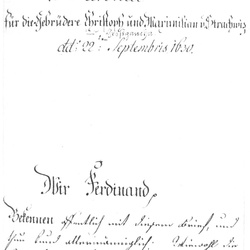 für die Gebrüdere Christoph und Maximilian v. Strachwiz
dtt: 22t: Septembris 1630.
Wir Ferdinand,
Bekennen öffentlich mit diesem Brief, und
thun kund allermänniglich: Wiewohl die